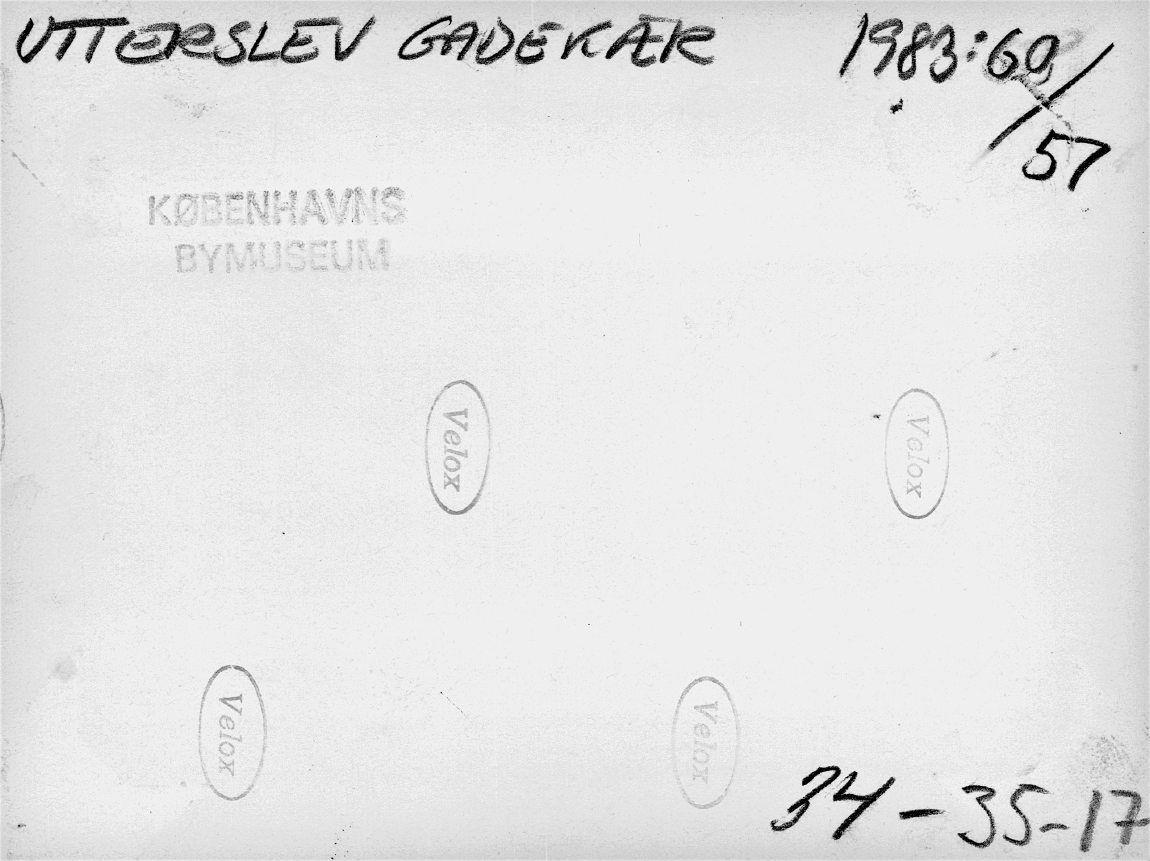 UTTERSLEV GADEKÆR 1983:60/57
KØBENHAVNS
BYMUSEUM
Velox
Velox
Velox
Velox
34-35-17